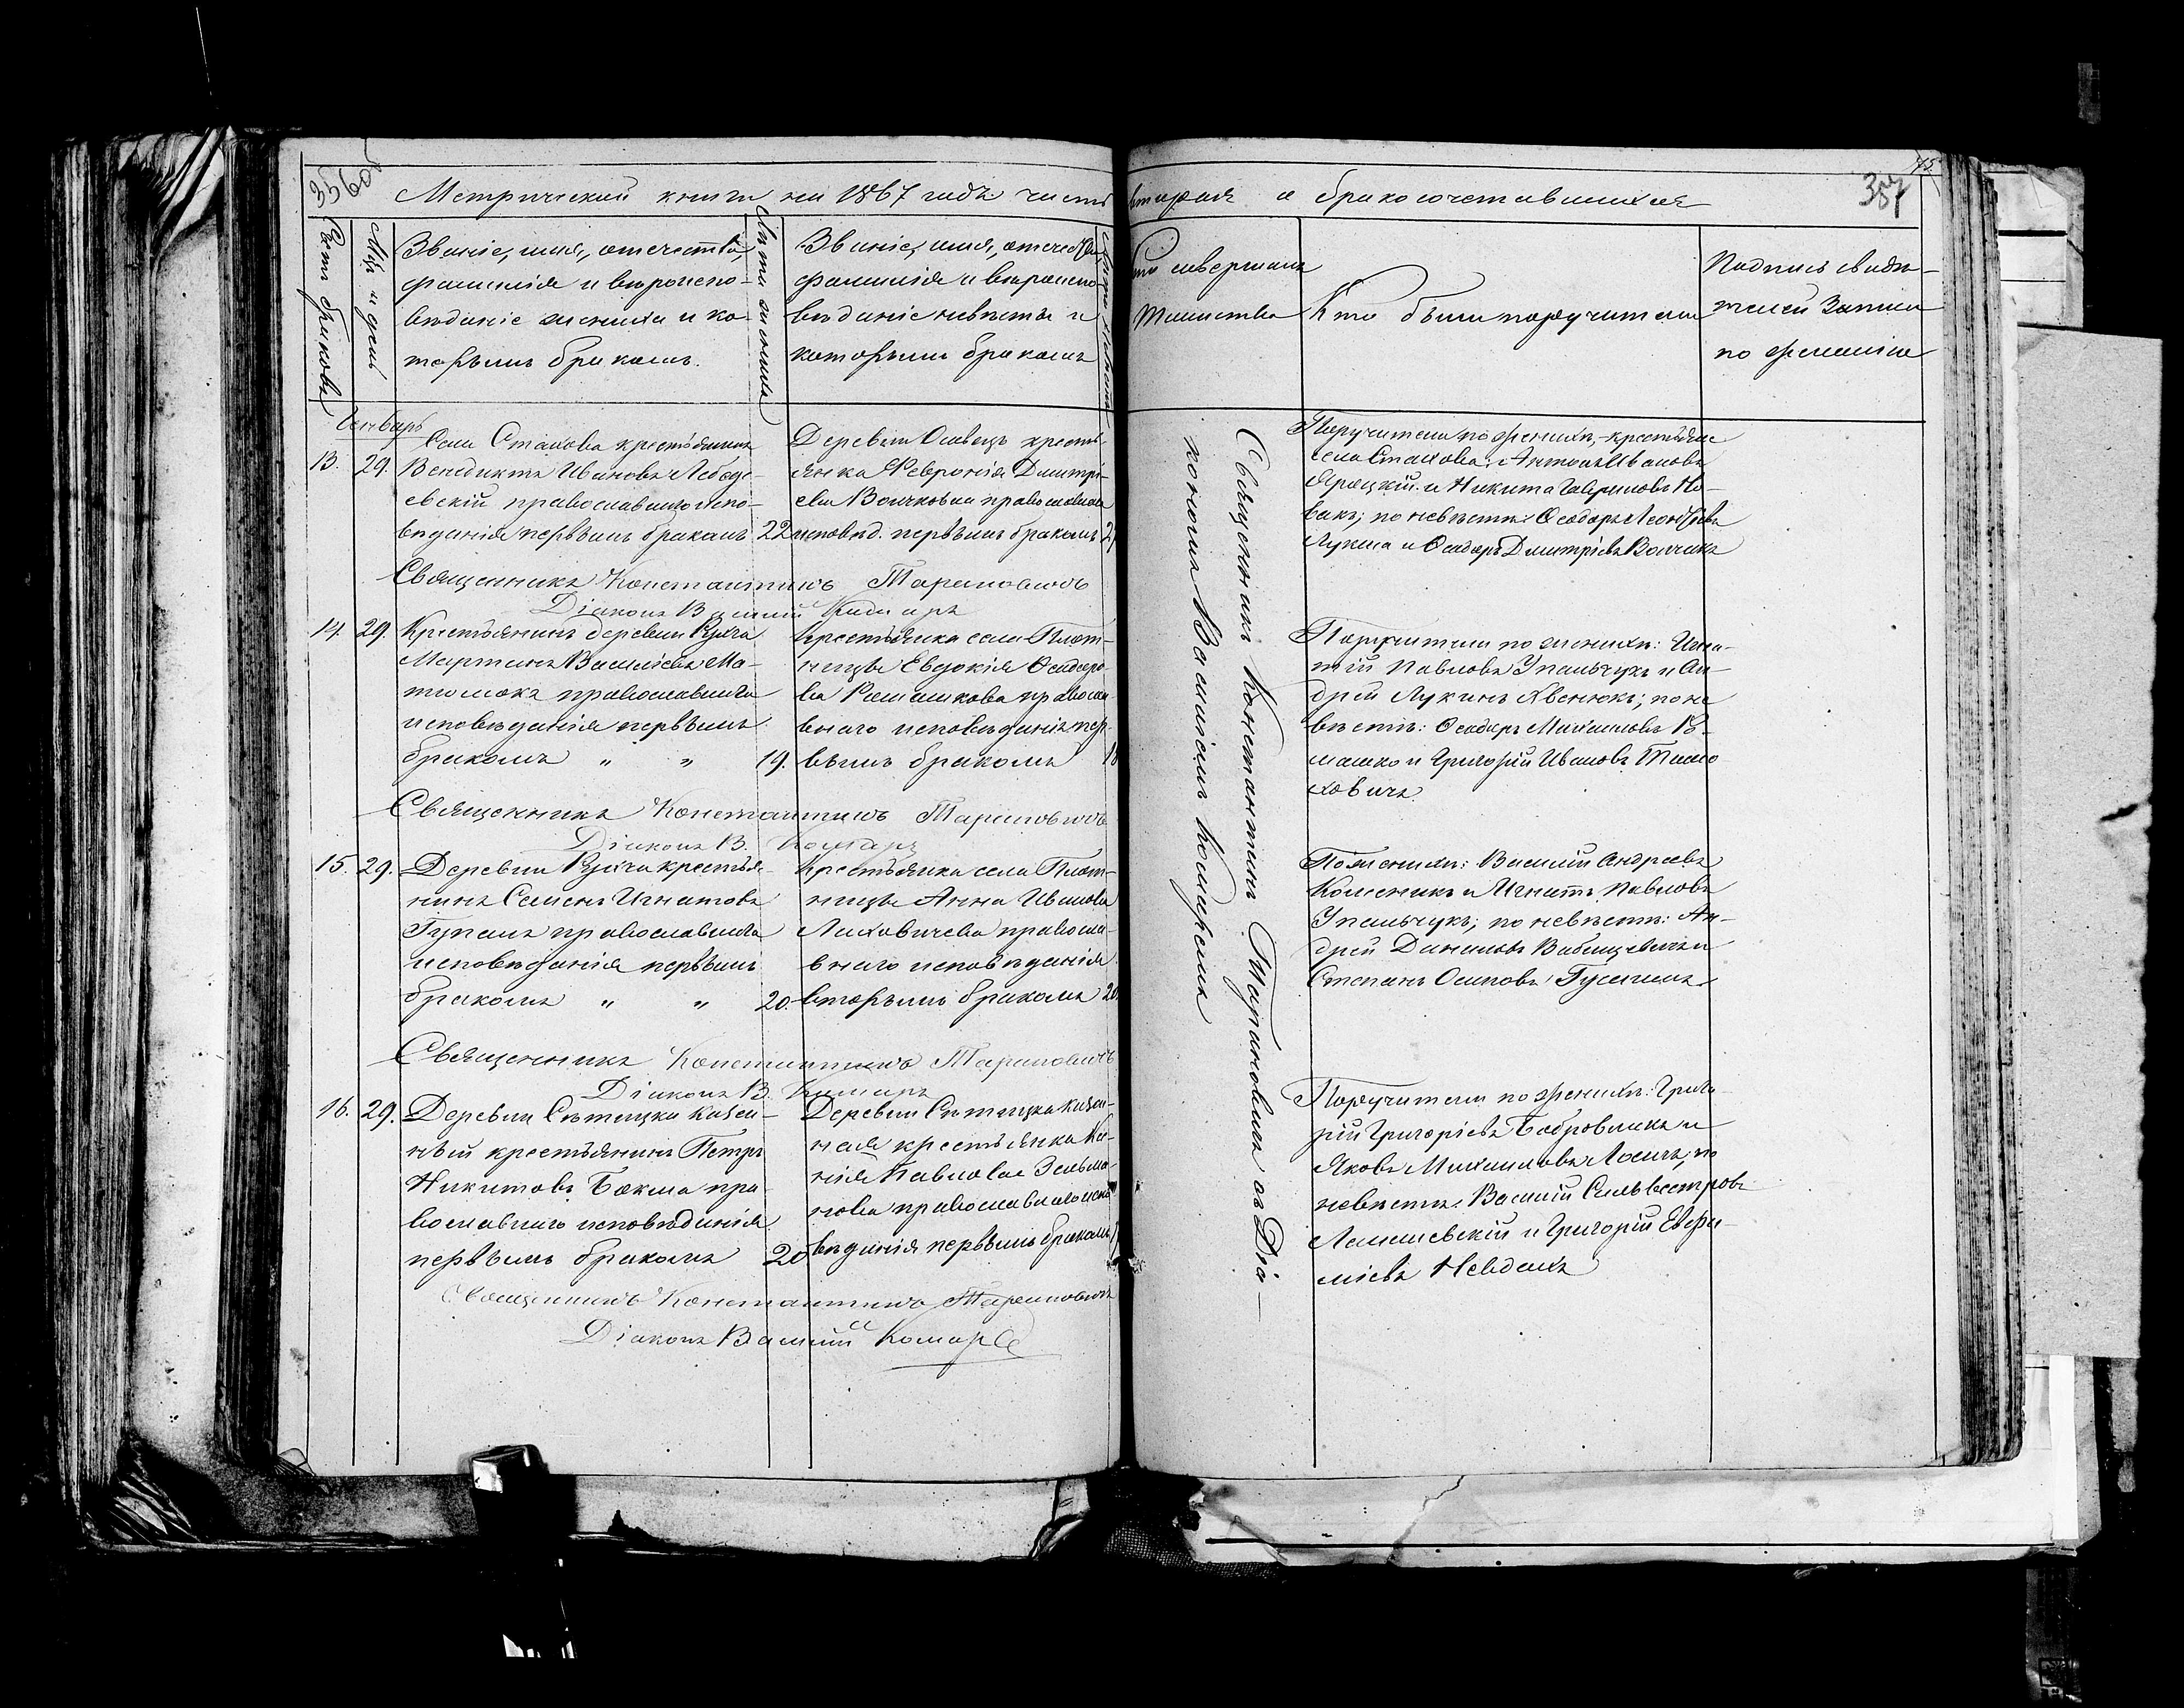 Метрической книги на 1867 годъ часть вторая о бракосочетавшихся
357
Счетъ браковъ
Мѣс. и день
Званіе, имя, отчество,
фамилія и вѣроиспо-
вѣданіе жениха и ко-
торымъ бракомъ.
Лѣта жениха
Званіе, имя, отчество,
фамилія и вѣроиспо-
вѣданіе невѣсты и
которымъ бракомъ
Кто совершалъ
Таинство
Кто были поручители
Подпись свидѣ-
телей записи
по желанію
Январь
13.
29.
Села Стахова крестьянинъ
Венедиктъ Ивановъ Лебеде-
вскій православнаго испо-
вѣданія первымъ бракомъ
22
Деревни Осовецъ кресть-
янка Февронія Димитрі-
ева Волчкова православнаго
исповѣд. первымъ бракомъ
Поручители по женихѣ, крестьяне
села Стахова: Антонъ Ивановъ
Ярецкій и Никита Гавриловъ Но-
вакъ; по невѣстѣ: Ѳеодоръ Леонтьевъ
Лукша и Ѳеодоръ Димитріевъ Волчекъ
Священникъ Константинъ Тариновичъ
Діаконъ Василій Комаръ
14.
29.
Крестьянинъ деревни Рухча
Мартинъ Василіевъ Ма-
тюшокъ православнаго
исповѣданія первымъ
бракомъ " "
19.
Крестьянка села Плот-
ницы Евдокія Ѳеодоро-
ва Ромашкова правосла-
внаго исповѣданія пер-
вымъ бракомъ
18
Поручители по женихѣ: Игна-
тій Павловъ Упальчукъ и Ан-
дрей Лукинъ Хвенюкъ; по не
вѣстѣ: Ѳеодоръ Михаиловъ Ро-
машко и Григорій Ивановъ
ховичъ
Священникъ Константинъ Тариновичъ
Діаконъ В. Комаръ
15.
29.
Деревни Рухча крестья-
нинъ Семенъ Игнатовъ
православнаго
исповѣданія первымъ
бракомъ " "
20.
Крестьянка села Плот-
ницы Анна Иванова
Лиховичева правосла-
внаго исповѣданія
вторымъ бракомъ
20
По женихѣ: Василій Андреевъ
Колесникъ и Игнатъ Павловъ
Упальчукъ; по невѣстѣ: Ан-
дрей Даниловъ Вабищевичъ и
Степанъ Осиповъ
Священникъ Константинъ Тариновичъ
Діаконъ В. Комаръ
16.
29.
Деревни Ситицка казен-
ный крестьянинъ Петръ
Никитовъ Бокша пра-
вославнаго исповѣданія
первымъ бракомъ
20
Деревни Ситицка казен-
ная крестьянка Ксе-
нія Павлова Зельма-
нова православнаго испо-
вѣданія первымъ бракомъ
Поручители по женихѣ: Григо-
рій Григоріевъ Бобровникъ и
Яковъ Михаиловъ Лосичъ; по
невѣстѣ: Василій Сильвестровъ
Лемешевскій и Григорій Евфи-
міевъ Невдахъ
Священникъ Константинъ Тариновичъ
Діаконъ Василій Комаръ
Священникъ Константинъ Тариновичъ съ Діа-
кономъ Василіемъ Комаремъ